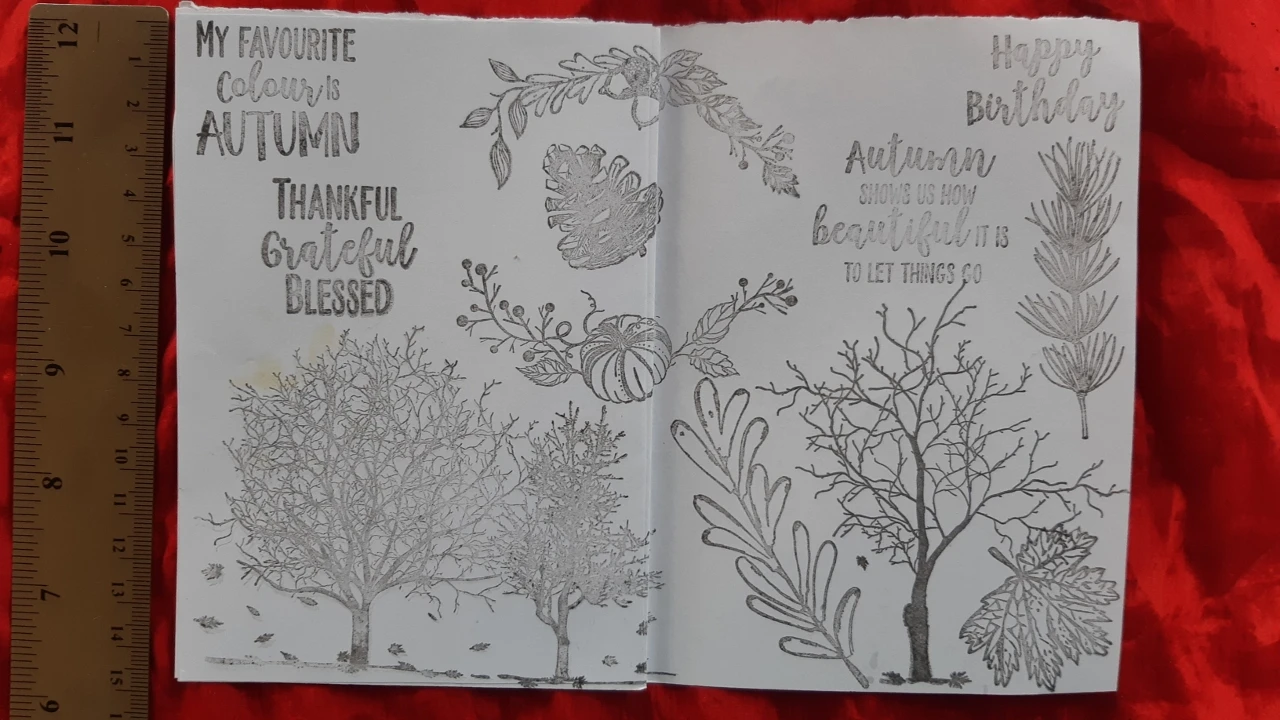 MY FAVOURITE
Colour IS
AUTUMN
THANKFUL
Grateful
BLESSED
Happy
Birthday
Autumn
SHOWS US HOW
beautiful IT IS
TO LET THINGS GO
12
11
10
9
8
7
6
1
2
3
4
5
6
7
8
9
10
11
12
13
14
15